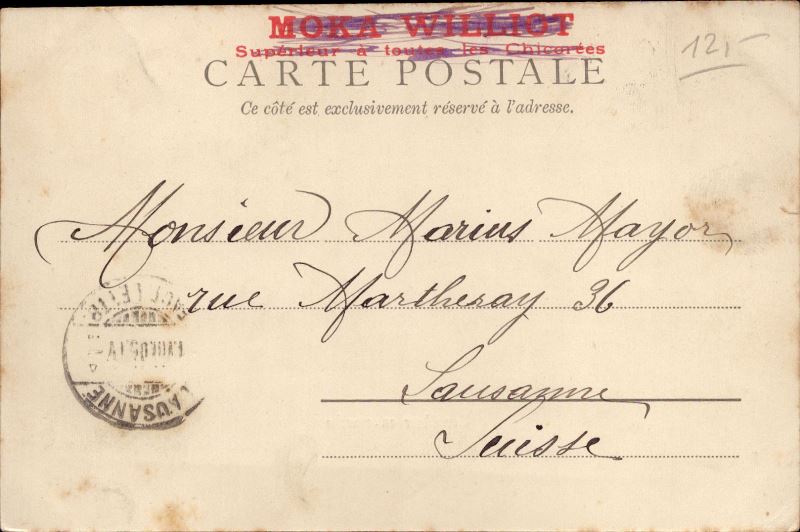 MOKA WILLIOT
Supérieur à toutes les Chicorées
12,-
CARTE POSTALE
Ce côté est exclusivement réservé à l'adresse.
Monsieur Marius Mayor
rue Martheray 36
Lausanne
Suisse
LAUSANNE